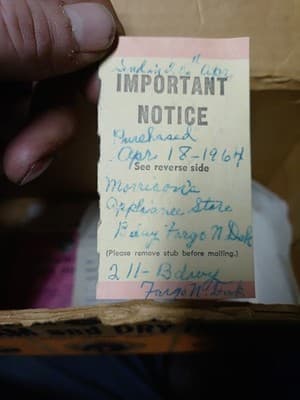 IMPORTANT
NOTICE
Purchased
Apr 18-1964
See reverse side
Morrison's
Appliance Store
Fargo N Dak
(Please remove stub before mailing.)
211- Bdwy
Fargo N. Dak
and DRY